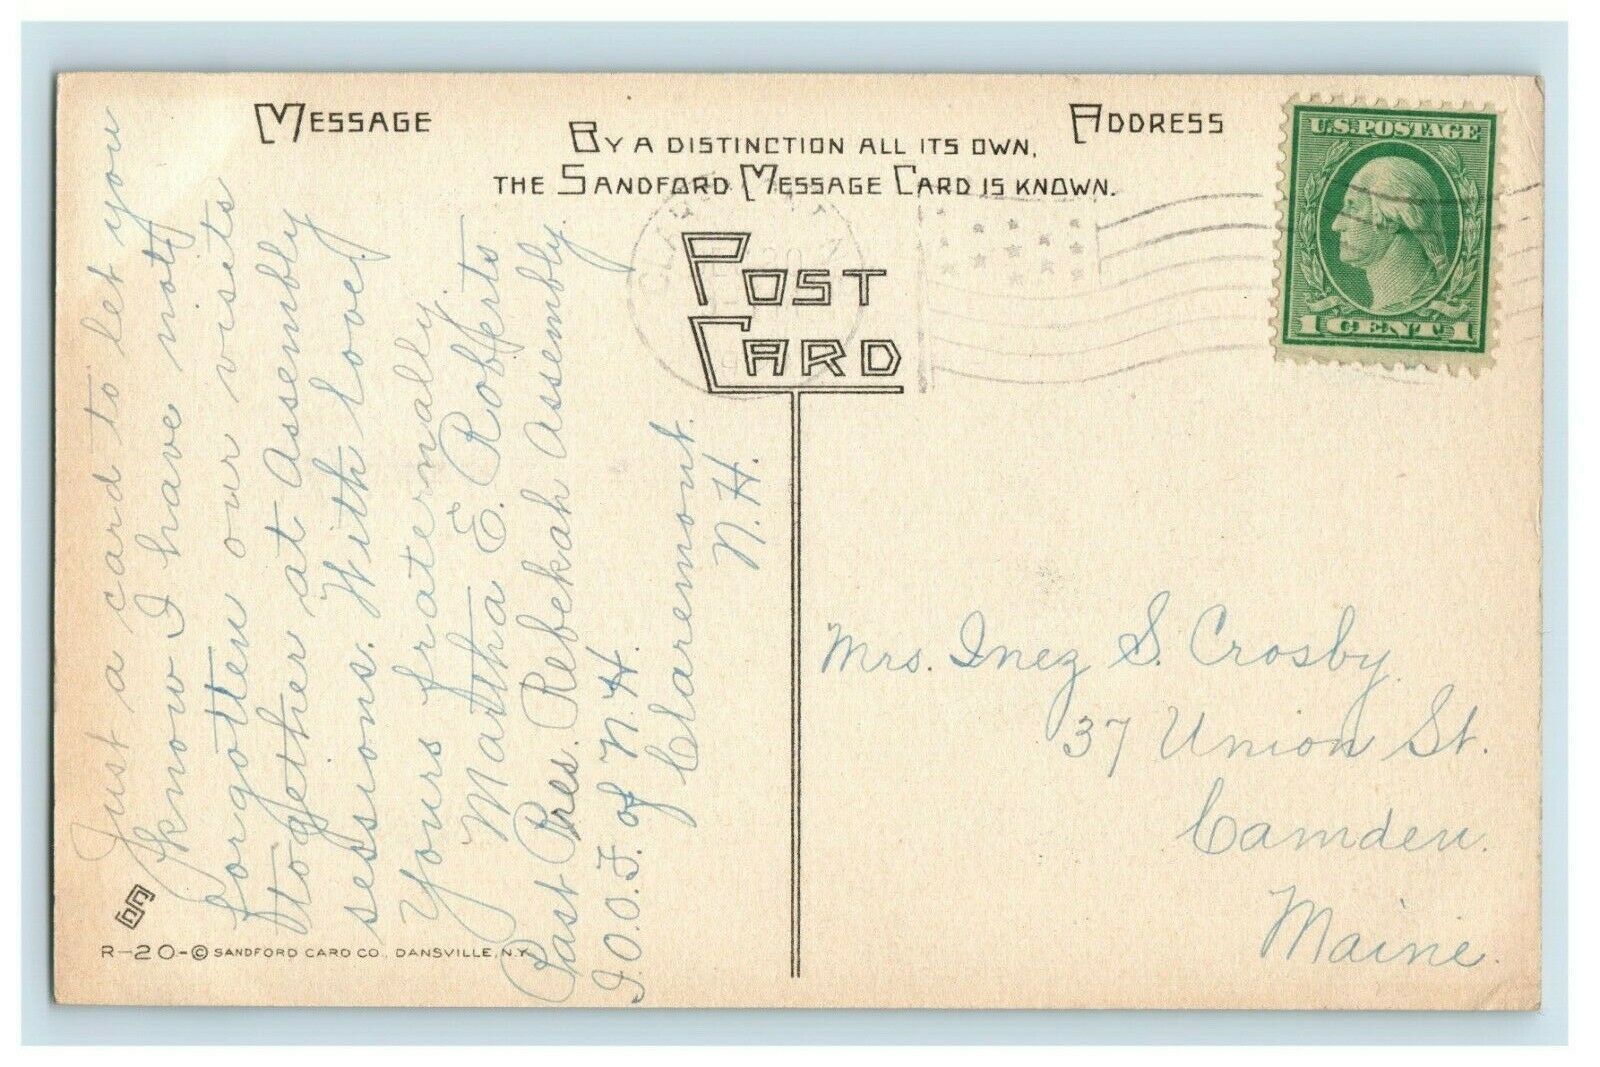 MESSAGE
ADDRESS
BY A DISTINCTION ALL ITS OWN,
THE SANDFORD MESSAGE CARD IS KNOWN.
POST
CARD
U.S. POSTAGE
1 CENT 1
Just a card to let you
know I have not
forgotten our visits
together at Assembly
sessions. With love.
Yours fraternally.
Martha E. Roberts
Past Pres. Rebekah Assembly.
I.O.O.F. of N.H.
Claremont.
N.H.
Mrs. Inez S. Crosby.
37 Union St.
Camden.
Maine.
R-20-© SANDFORD CARD CO., DANSVILLE, N.Y.